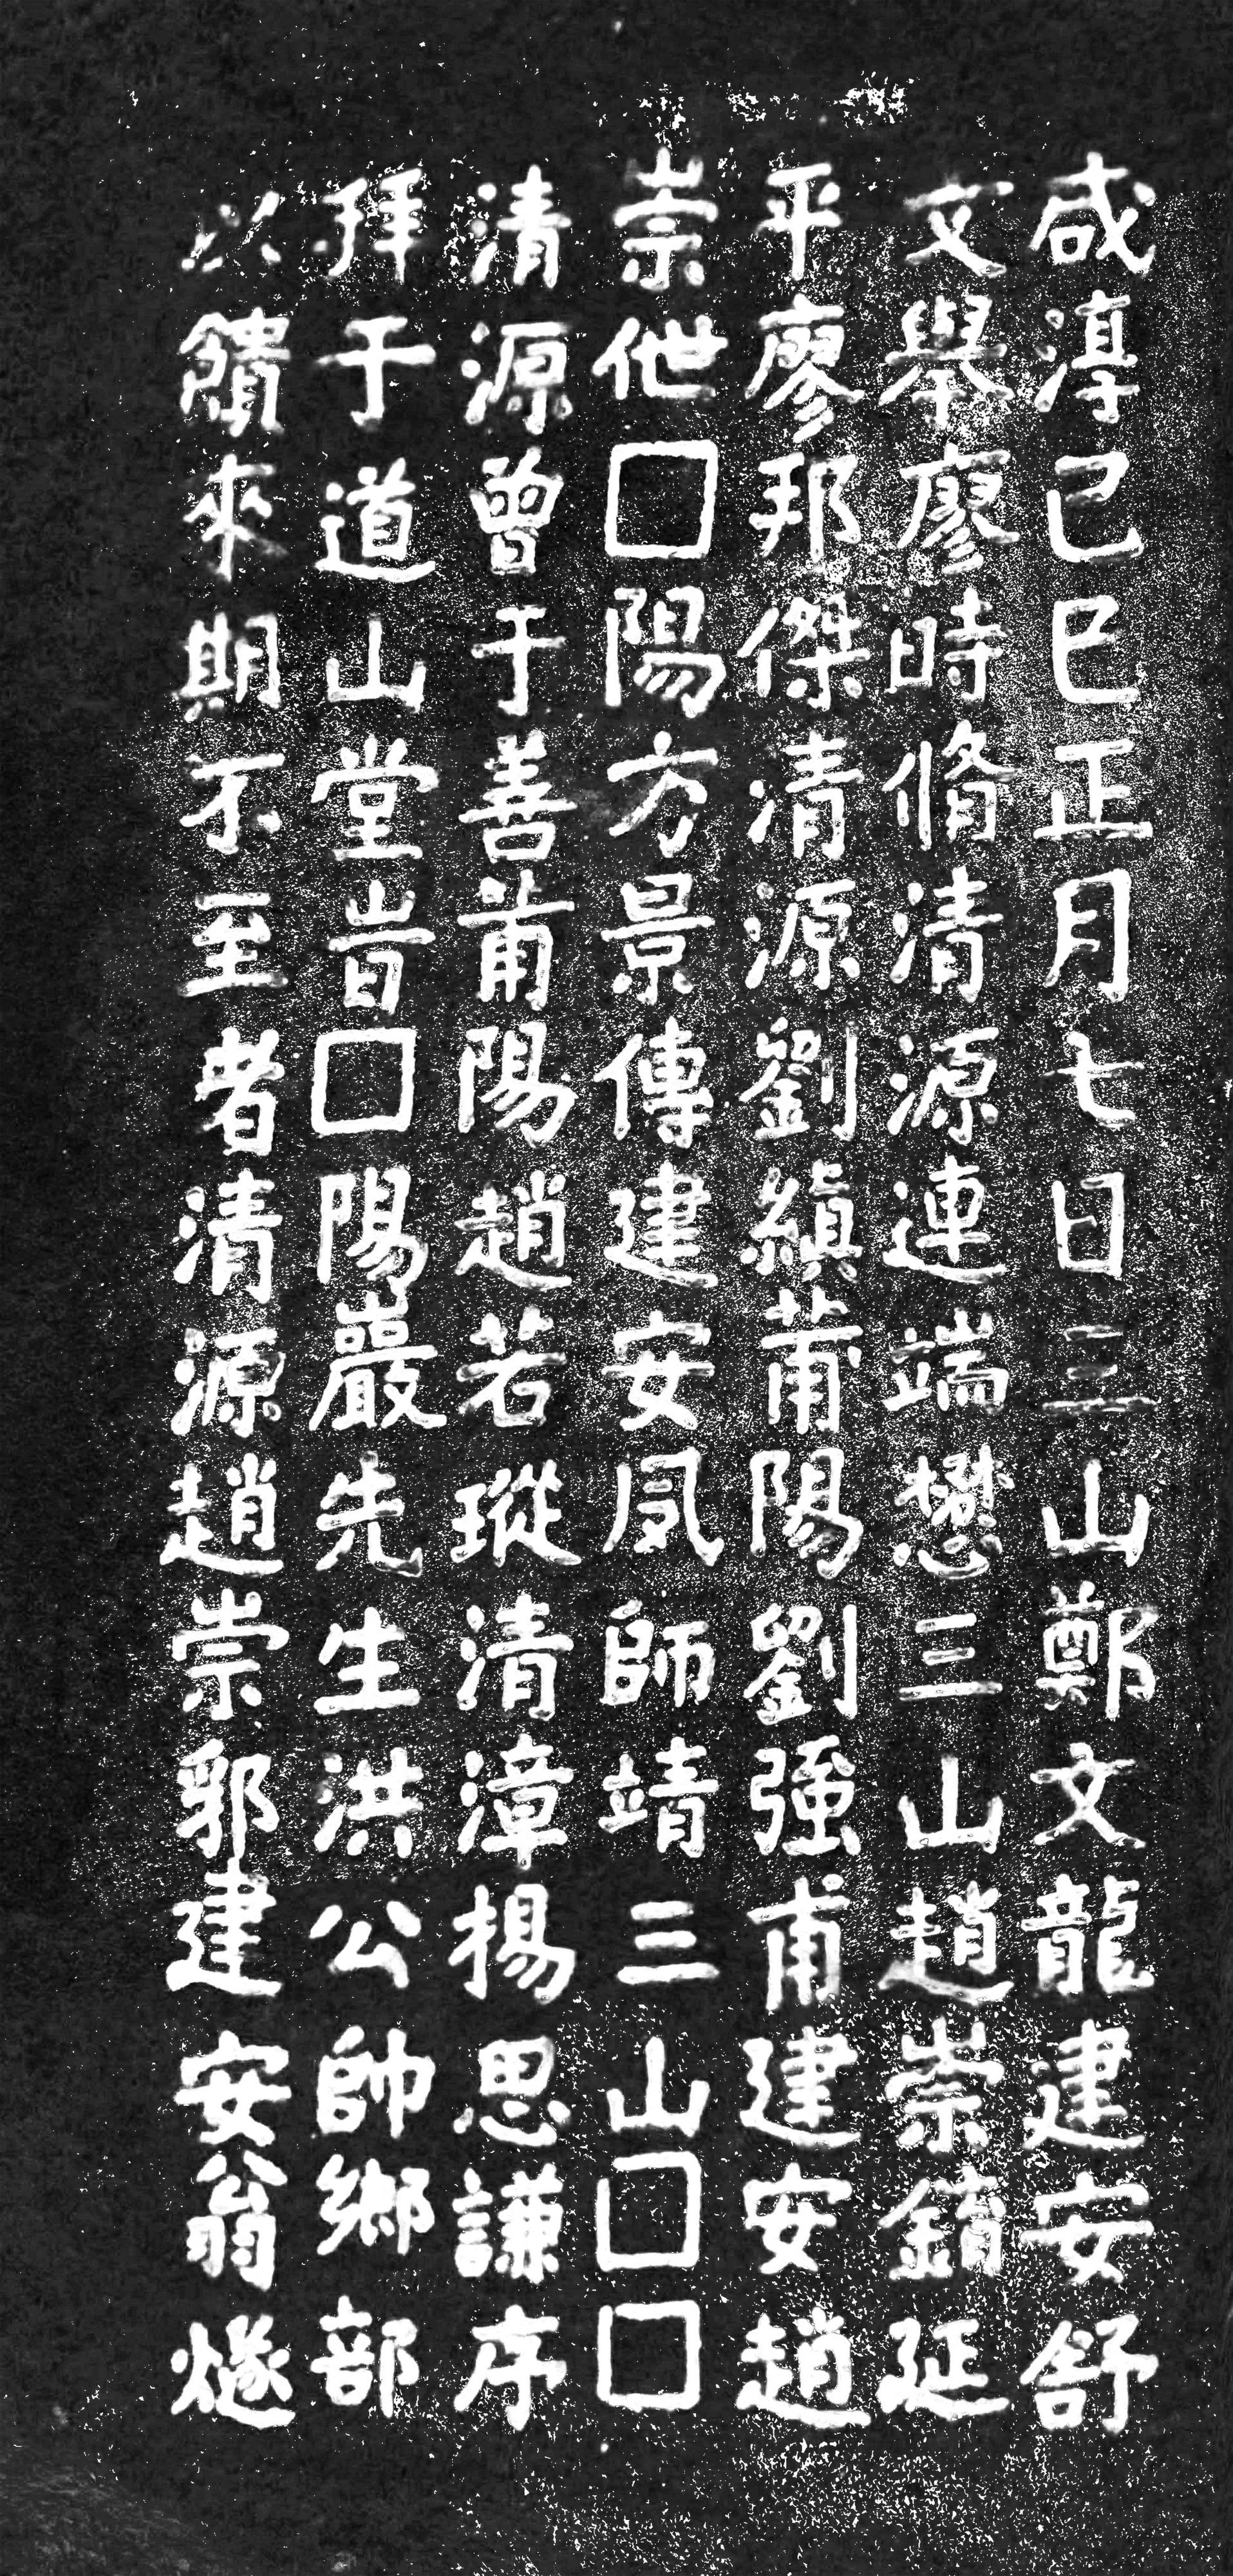 咸淳己巳正月七日三山鄭文龍建安舒
文舉廖時脩清源連端懋三山趙崇鐥延
平廖邦傑清源劉縝莆陽劉強甫建安趙
崇伳□陽方景傳建安夙師靖三山□□
清源曾于善莆陽趙若瑽清漳楊思謙序
拜于道山堂旹□陽巖先生洪公帥鄉部
以饋來期不至者清源趙崇郛建安翁燧